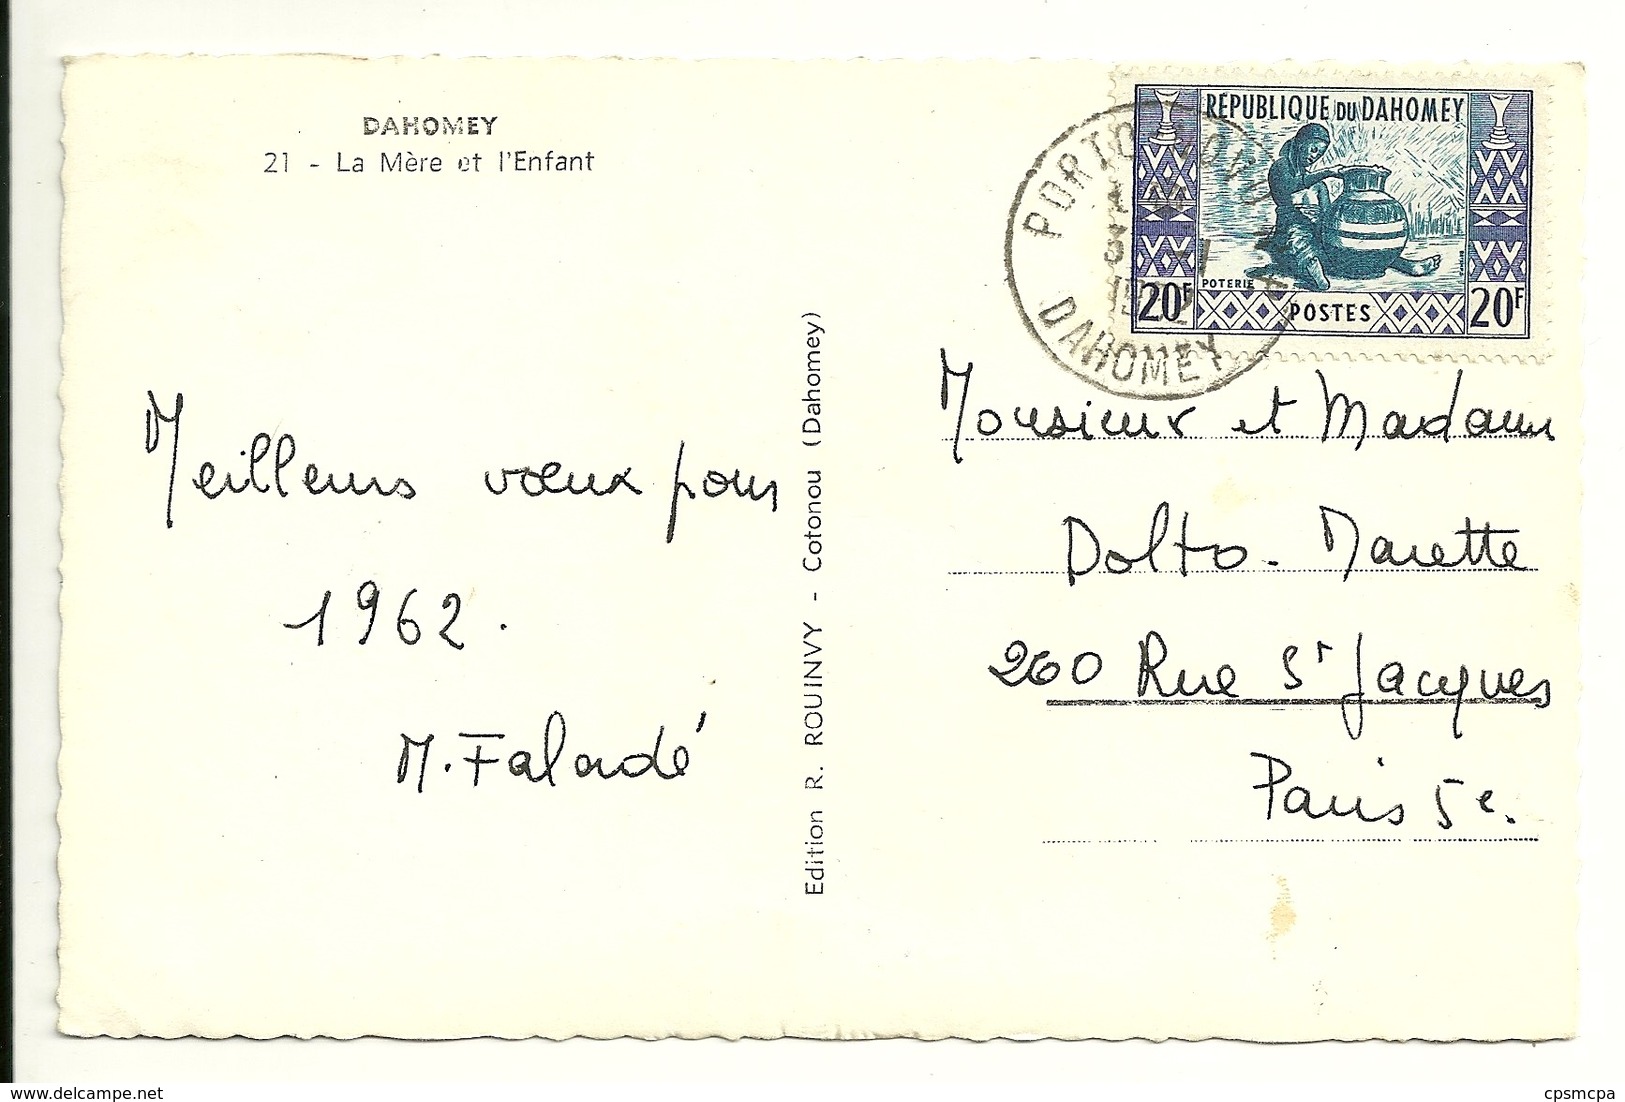 DAHOMEY
21 - La Mère et l'Enfant
Meilleurs vœux pour
1962.
M. Faladé
Edition R. ROUINVY - Cotonou (Dahomey)
REPUBLIQUE DU DAHOMEY
POTERIE
20F POSTES 20F
PORTO NOVO
DAHOMEY
Monsieur et Madame
Dolto-Marette
260 Rue St Jacques
Paris 5e.
www.delcampe.net
cpsmcpa